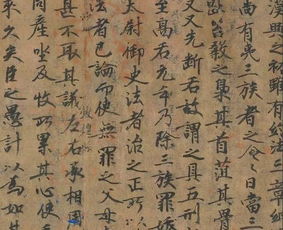 漢興之初雖有約法三章
尚有夷三族者之令令曰當三
笞殺之梟其首菹其骨
又先斷舌故謂之具五刑
至高后元年乃除三族罪祅
太尉御史法者治之正所以
法者已論而使無罪之父母
甚不取其議左右丞相周
同產坐及收所以累其心使
來久矣臣之愚計以為如其